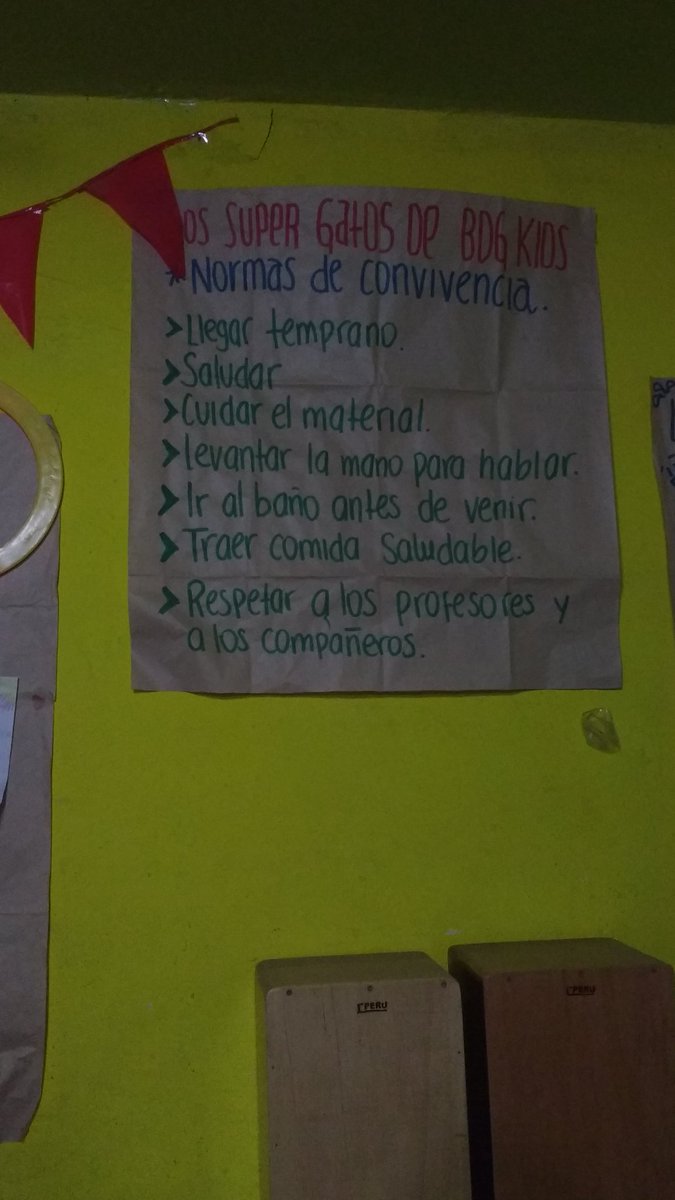 os SUPER GatOS De BDG KIDS
* Normas de convivencia.
> Llegar temprano.
> Saludar
> Cuidar el material.
> levantar la mano para hablar.
> Ir al baño antes de venir.
> Traer comida Saludable.
> Respetar a los profesores y
a los compañeros.
PERU
PERU